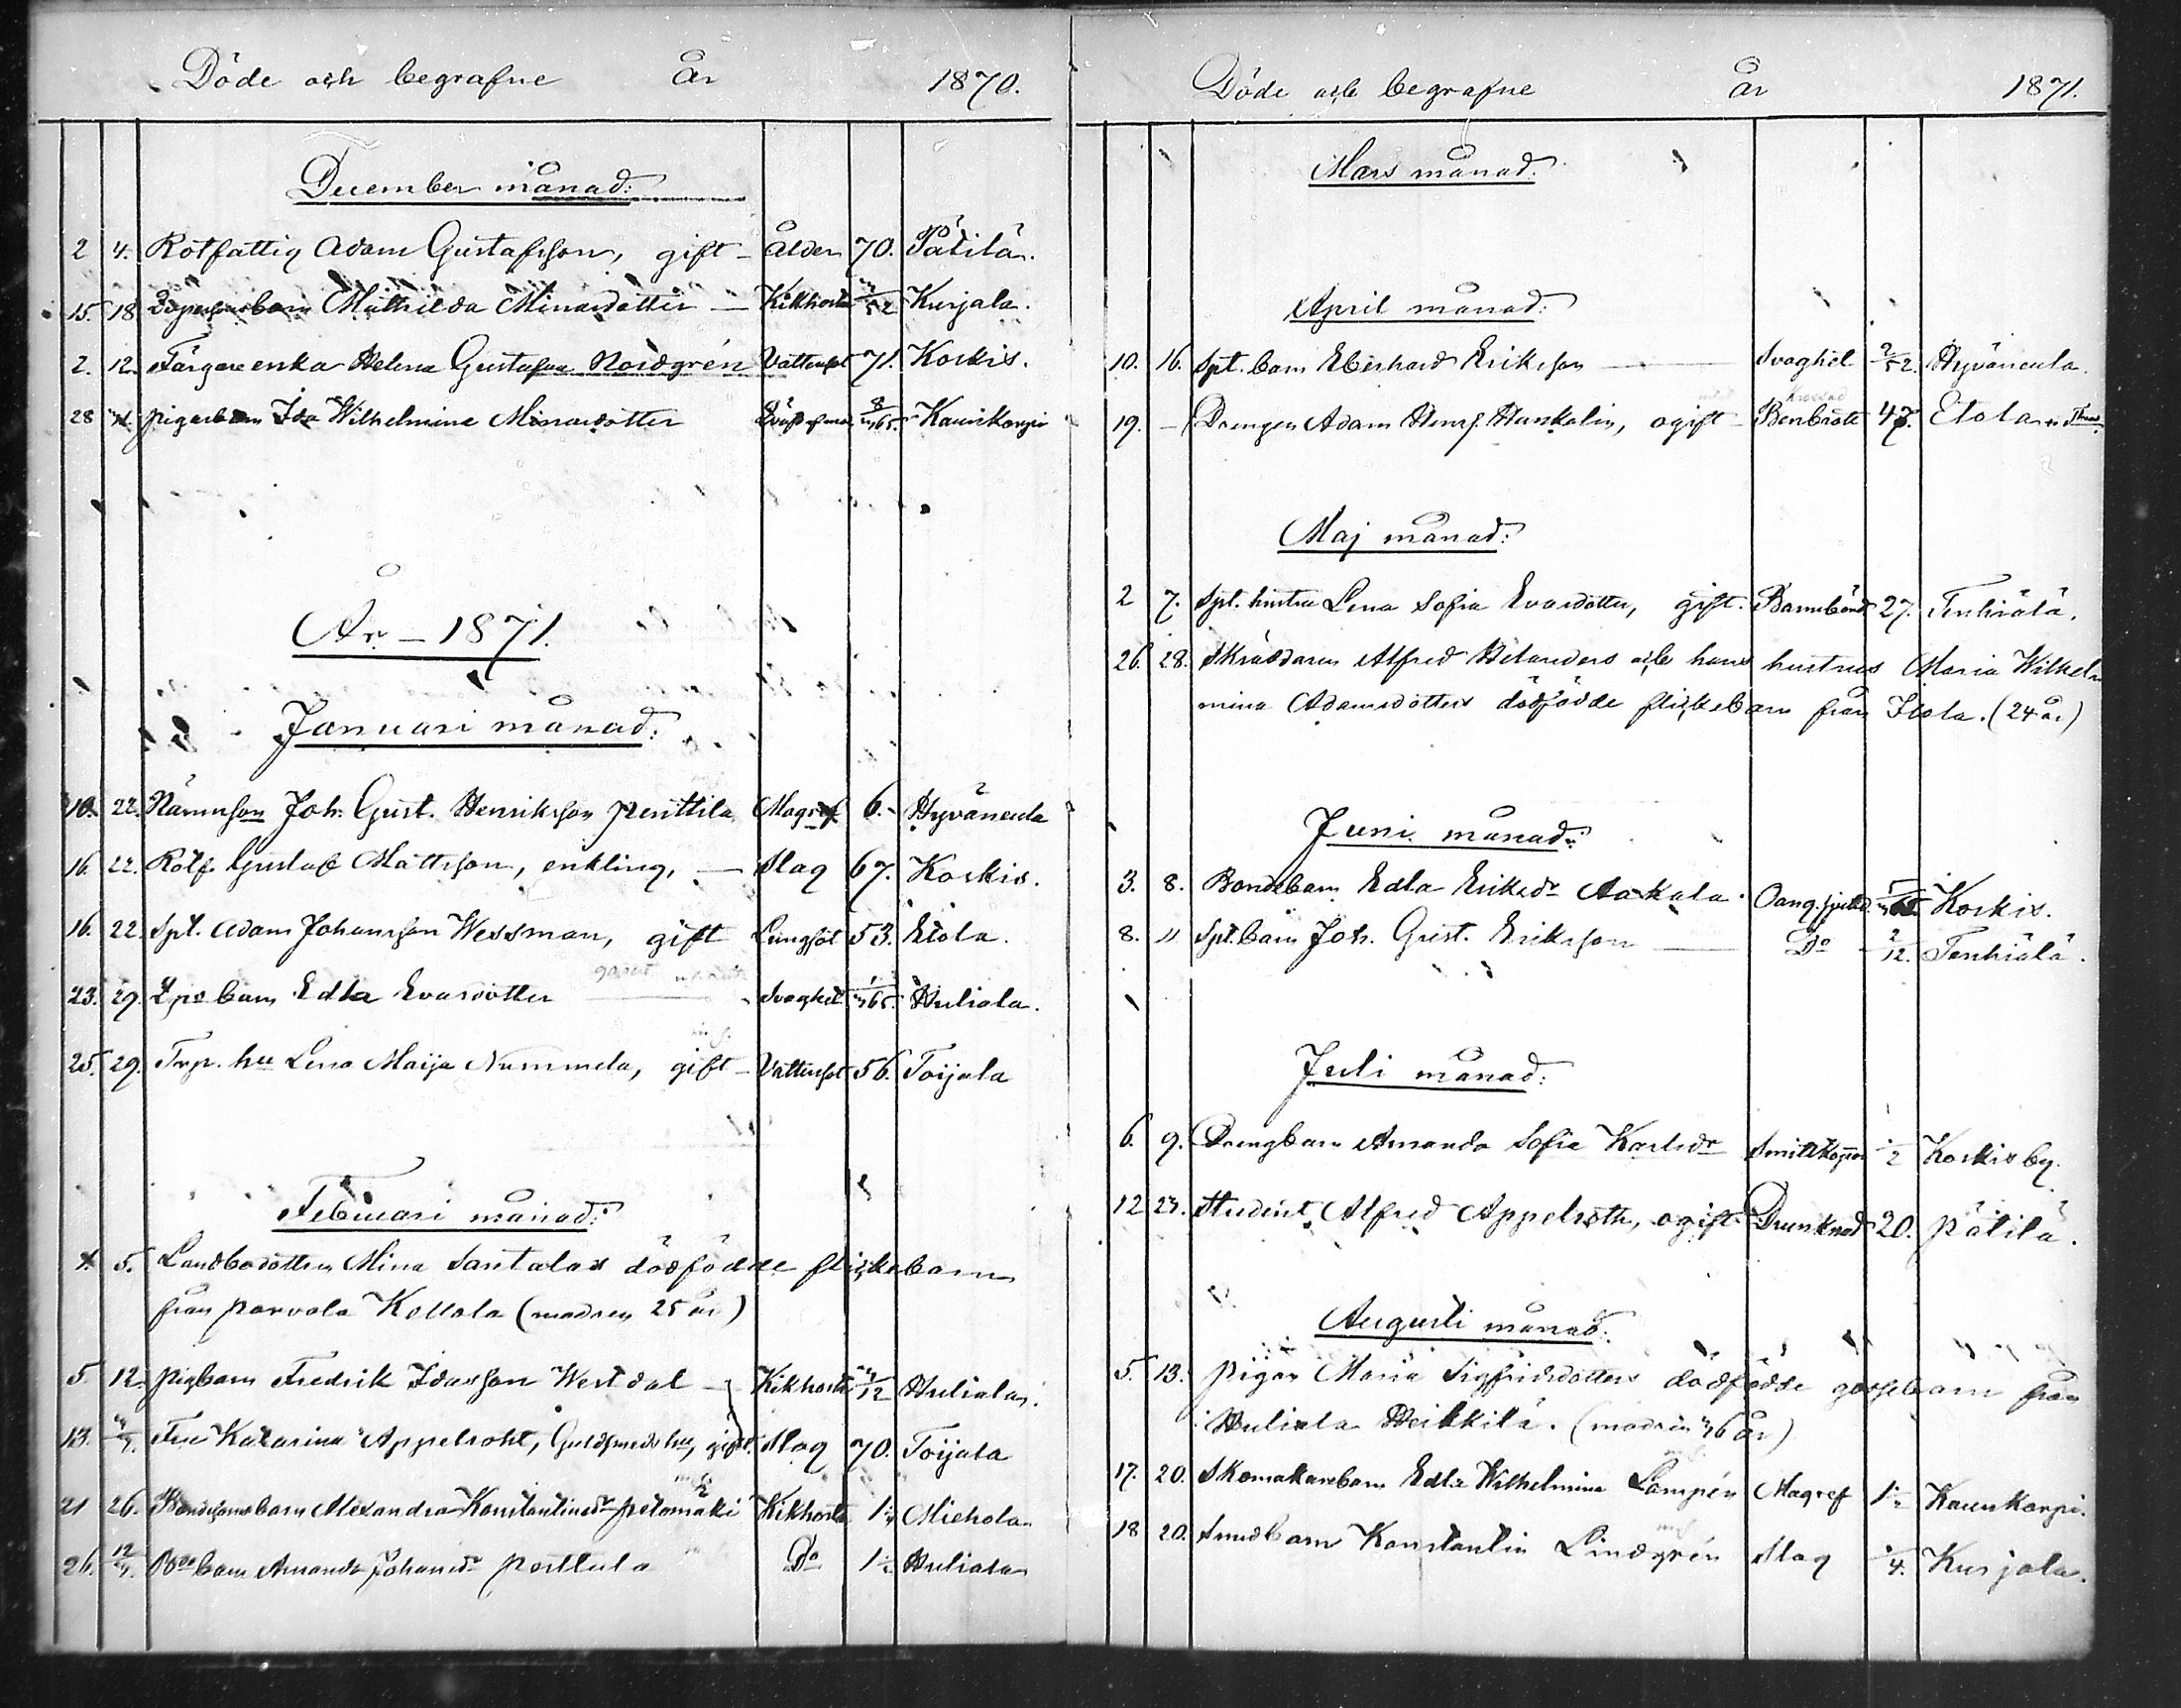 Döde och begrafne År 1870.
December månad:
2 4. Rotfattig Adam Gustafsson, gift – Ålder 70. Pätilä.
15. 18 barn Mathilda Minasdotter — Kikhosta Kurjala.
2. 12. Färgare enka Helena Gustafva Nordgrén Vattusot 71. Koskis.
28 pigæbarn Ida Wilhelmina Minasdotter 8/365. Kauriskorpi
År – 1871.
Januari månad:
10. 22. Joh. Gust. Henriksson Penttilä Magref 6. Hyväneula
16. 22. Rotf. Gustaf Mattsson, enkling, — Slag 67. Koskis.
16. 22. Spt. Adam Johansson Wessman, gift Lungsot 53. Etola.
23. 29. barn Edla Evasdotter Svaghet 1/365. Huliala.
25. 29. Trp. hu Lena Maija Nummela, gift – Vattusot 56. Toijala
Februari månad:
5. Landbodottren Mina Santalas dödfödde flickebarn
från Parvola Kollola (modren 25 år)
5 12. pigbarn Fredrik Idasson Westdal – Kikhosta /12 Huliala.
13. Fru Katarina Appelroht, Guldsmeds hu, gift. Slag 70. Toijala
21 26. Bondesonsbarn Alexandra Konstantinsdr Kikhosta Miehola
26. 12/3. barn Amanda Johansdr Do Huliala
Döde och begrafne År 1871.
Mars månad:
April månad:
10. 16. Spt. barn Eberhard Eriksson — Svaghet 2/52. Hyväneula.
19. – Drengen Adam Henrs. Hankalin, ogift – Benbrott 47. Etola
Maj månad:
2 7. Spt. hustru Lena Sofia Evasdotter, gift. Barnsbörd 27. Tenhiälä.
26. 28. Skräddaren Alfred Helanders och hans hustrus Maria Wilhel
mina Adamsdotters dödfödde flickebarn från Etola. (24 år)
Juni månad:
3. 8. Bondebarn Edla Eriksdr Aakala. Koskis.
8. 11 Spt. barn Joh. Gust. Eriksson — Do 2/12. Tenhiälä.
Juli månad:
6. 9. Drengbarn Amanda Sofia Karlsdr Smittkoppor 1/2 Koskis by.
12 23. Student Alfred Appelroth, ogift. Drunknad 20. Pätilä.
Augusti månad:
5. 13. pigan Maria Sigfridsdotters dödfödde gossebarn från
Huliala Heikkilä. (modren 36 år)
17. 20. Skomakarebarn Edla Wilhelmina Lampén Magref Kauriskorpi.
18 20. Smedbarn Konstantin Lindgrén Slag 1/4. Kurjala.